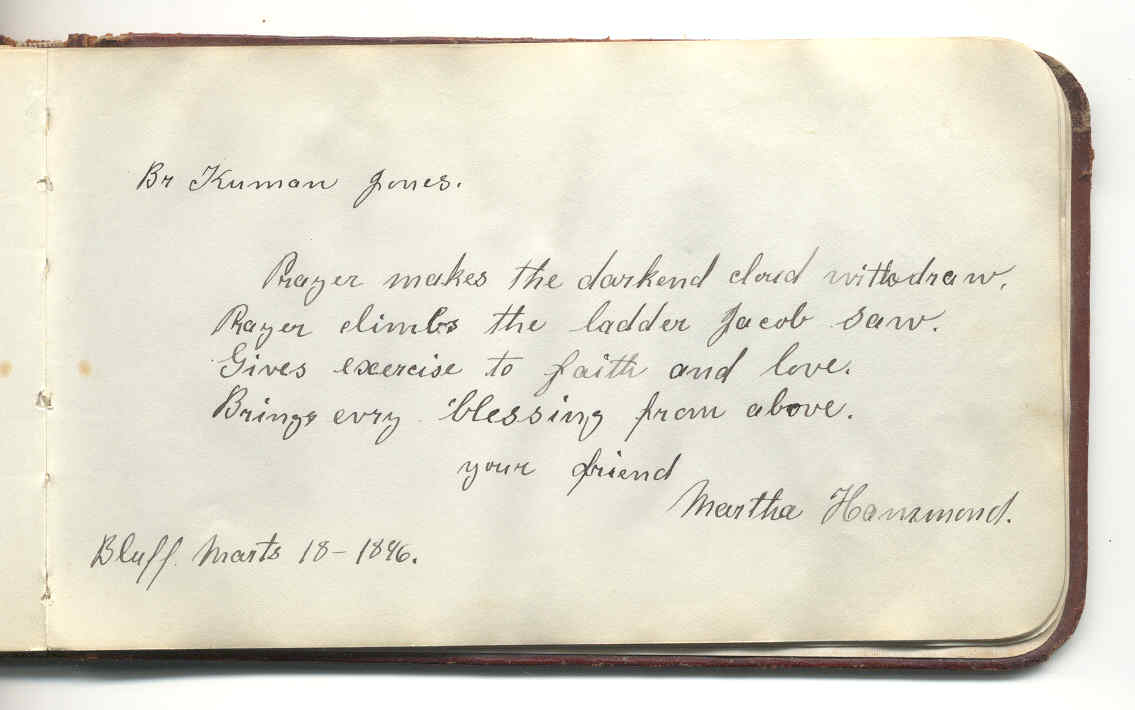 Br Kuman Jones.
Prayer makes the darkend cloud withdraw.
Prayer climbs the ladder Jacob saw.
Gives exercise to faith and love.
Brings evry blessing from above.
your friend
Martha Hammond.
Bluff. Marts 18 - 1896.